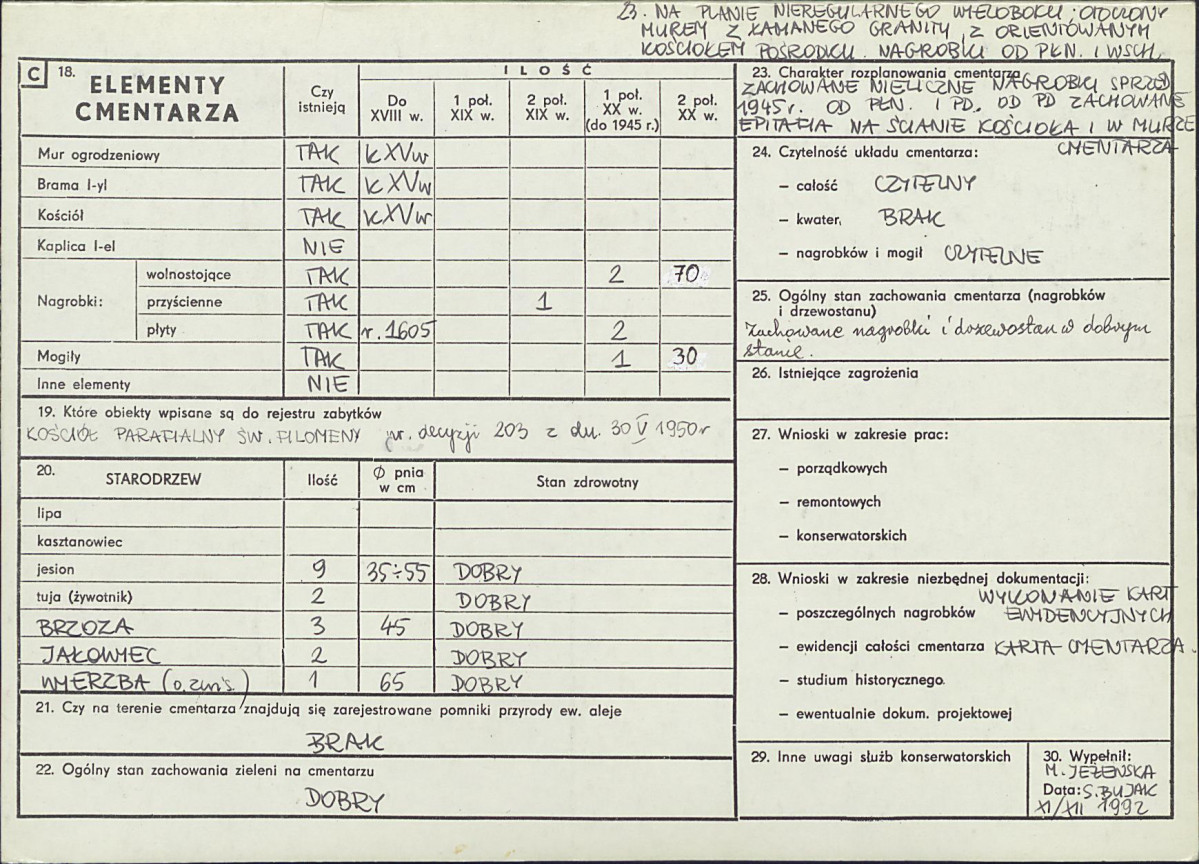 23. NA PLANIE NIEREGULARNEGO WIELOBOKU; OTOCZONY
MUREM Z ŁAMANEGO GRANITU, Z ORIENTOWANYM
KOŚCIOŁEM POŚRODKU. NAGROBKI OD PŁN. I WSCH.
C 18. ELEMENTY
CMENTARZA
Czy
istnieją
ILOŚĆ
Do
XVIII w.
1 poł.
XIX w.
2 poł.
XIX w.
1 poł.
XX w.
(do 1945 r.)
2 poł.
XX w.
Mur ogrodzeniowy TAK k XVw
Brama l-yl TAK k XVw
Kościół TAK k XVw
Kaplica l-el NIE
Nagrobki:
wolnostojące TAK 2 70
przyścienne TAK 1
płyty TAK r. 1605 2
Mogiły TAK 1 30
Inne elementy NIE
19. Które obiekty wpisane są do rejestru zabytków
KOŚCIÓŁ PARAFIALNY ŚW. FILOMENY nr. decyzji 203 z dn. 30 V 1950r
20. STARODRZEW Ilość Ø pnia
w cm Stan zdrowotny
lipa
kasztanowiec
jesion 9 35÷55 DOBRY
tuja (żywotnik) 2 DOBRY
BRZOZA 3 45 DOBRY
JAŁOWIEC 2 DOBRY
WIERZBA 1 65 DOBRY
21. Czy na terenie cmentarza znajdują się zarejestrowane pomniki przyrody ew. aleje
BRAK
22. Ogólny stan zachowania zieleni na cmentarzu
DOBRY
23. Charakter rozplanowania cmentarza
ZACHOWANE NIELICZNE NAGROBKI SPRZED
1945 r. OD PŁN. I PD. OD PD ZACHOWANE
EPITAFIA NA ŚCIANIE KOŚCIOŁA I W MURZE
CMENTARZA
24. Czytelność układu cmentarza:
– całość CZYTELNY
– kwater, BRAK
– nagrobków i mogił CZYTELNE
25. Ogólny stan zachowania cmentarza (nagrobków
i drzewostanu)
Zachowane nagrobki i drzewostan w dobrym
stanie.
26. Istniejące zagrożenia
27. Wnioski w zakresie prac:
– porządkowych
– remontowych
– konserwatorskich
28. Wnioski w zakresie niezbędnej dokumentacji:
WYKONANIE KART
– poszczególnych nagrobków EWIDENCYJNYCH
– ewidencji całości cmentarza KARTA CMENTARZA.
– studium historycznego
– ewentualnie dokum. projektowej
29. Inne uwagi służb konserwatorskich
30. Wypełnił:
M. JEŻEWSKA
Data: S. BUJAK
XI/XII 1992